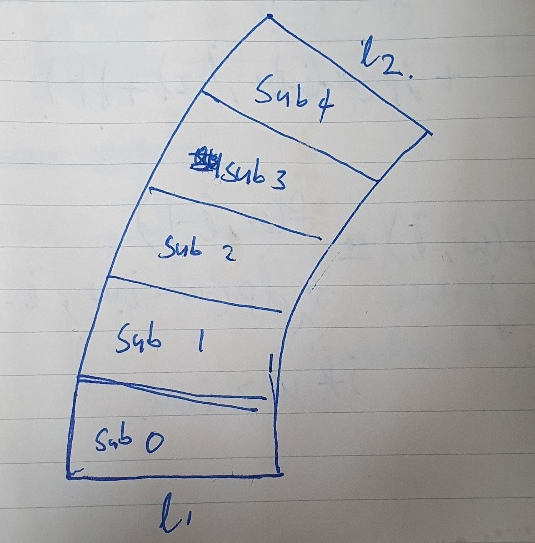 l2.
Sub 4
Sub 3
Sub 2
Sub 1
Sub 0
l1